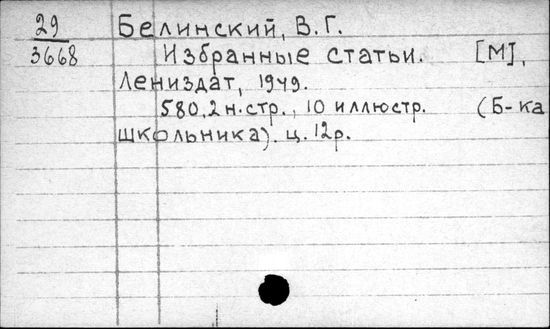 29 Белинский, В.Г.
3668 Избранные статьи. [М],
Лениздат, 1949.
580,2 н.стр., 10 иллюстр. (Б-ка
школьника). ц. 12р.